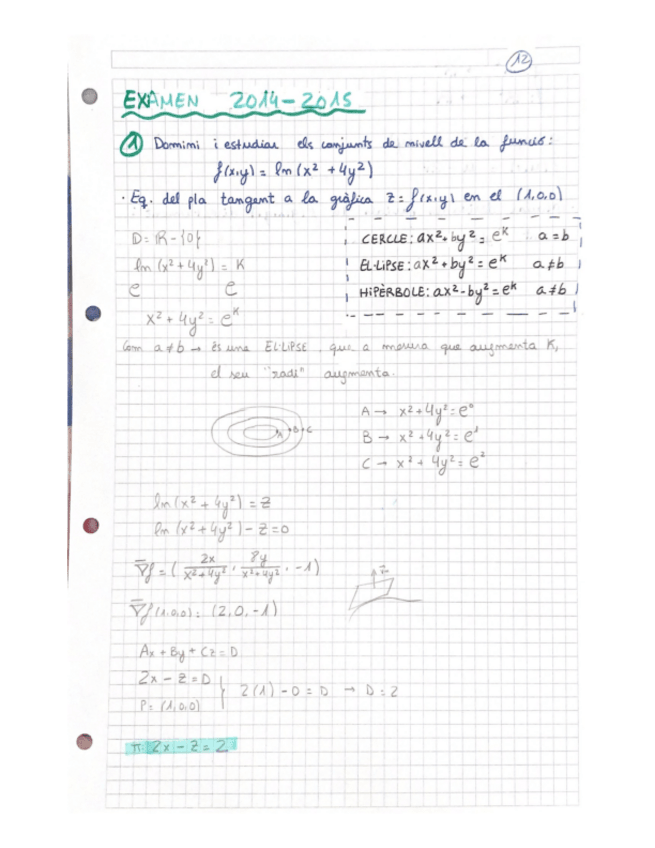 12
EXAMEN 2014-2015
1 Domini i estudiar els conjunts de nivell de la funció:
f(x,y) = ln(x² + 4y²)
· Eq. del pla tangent a la gràfica z = f(x,y) en el (1,0,0)
D = R - {0}
ln (x² + 4y²) = K
e e
x² + 4y² = e^K
CERCLE: ax² + by² = e^K a = b
EL·LIPSE: ax² + by² = e^K a ≠ b
HIPÈRBOLE: ax² - by² = e^K a ≠ b
Com a ≠ b → és una EL·LIPSE, que a mesura que augmenta K,
el seu "radi" augmenta.
A B C
A → x² + 4y² = e⁰
B → x² + 4y² = e¹
C → x² + 4y² = e²
ln (x² + 4y²) = z
ln (x² + 4y²) - z = 0
∇f = ( 2x / x² + 4y² , 8y / x² + 4y² , -1)
∇f (1,0,0) = (2, 0, -1)
Ax + By + Cz = D
2x - z = D
P = (1,0,0)
2(1) - 0 = D → D = 2
π: 2x - z = 2